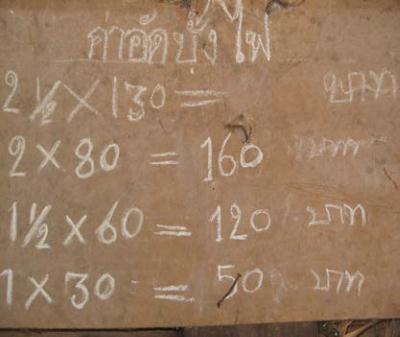 ค่าอัดบั้งไฟ
2 1/2 × 130 = บาท
2 × 80 = 160 บาท
1 1/2 × 60 = 120 บาท
1 × 30 = 50 บาท